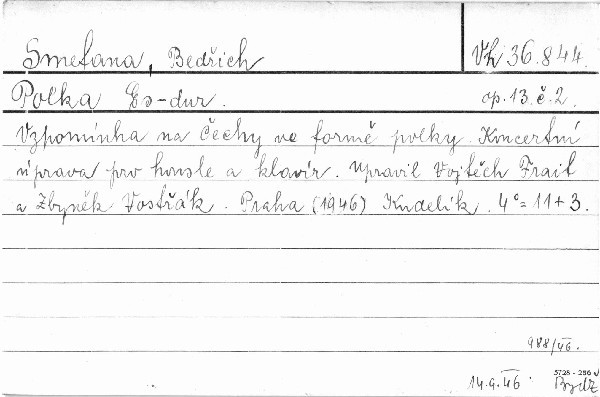 Smetana, Bedřich Vh 36.844.
Polka Es-dur. op. 13. č. 2.
Vzpomínka na Čechy ve formě polky. Koncertní
úprava pro housle a klavír. Upravil Vojtěch Frait
a Zbyněk Vostřák. Praha (1946) Kudelík. 4°= 11 + 3.
988/46.
5728 - 286
14.9.46.